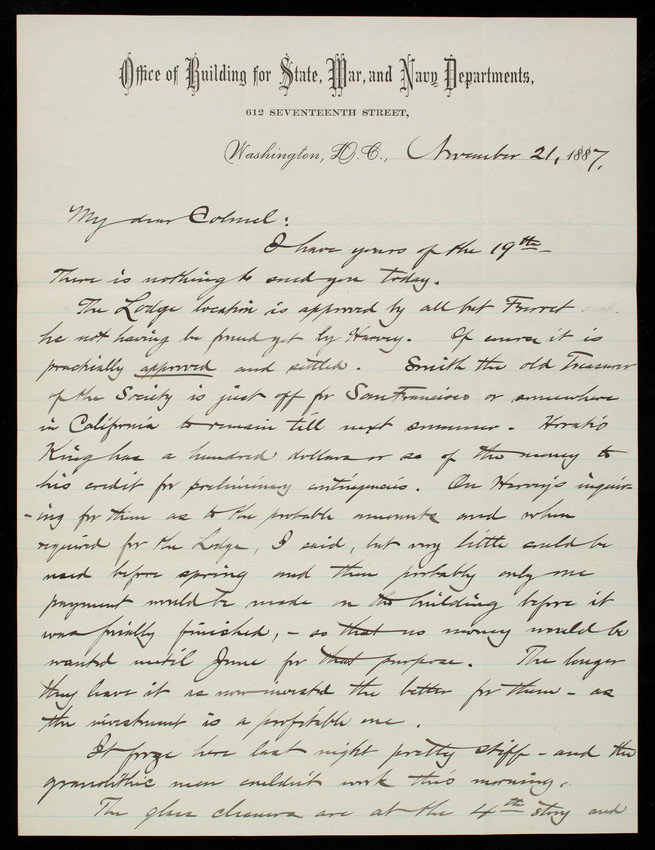 Office of Building for State, War, and Navy Departments,
612 SEVENTEENTH STREET,
Washington, D.C., November 21, 1887.
My dear Colonel:
I have yours of the 19th-
There is nothing to send you today.
The Lodge location is approved by all but
he not having be found yet by Harvey. Of course it is
practically approved and settled. Smith the old Treasurer
of the Society is just off for San Francisco or somewhere
in California to remain till next summer - Horatio
King has a hundred dollars or so of the money to
his credit for preliminary contingencies. On Harvey's inquir-
-ing for them as to the probable amounts and when
required for the Lodge, I said, but very little could be
used before spring and then probably only one
payment would be made on the building before it
was finally finished, - as that no money would be
wanted until June for that purpose. The longer
they leave it as now invested the better for them - as
the investment is a profitable one.
It froze here last night pretty stiff - and the
granolithic men couldn't work this morning.
The glass cleaners are at the 4th story and